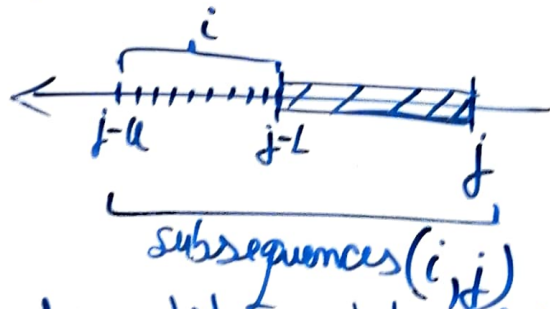 i
j-u j-L j
subsequences(i,j)